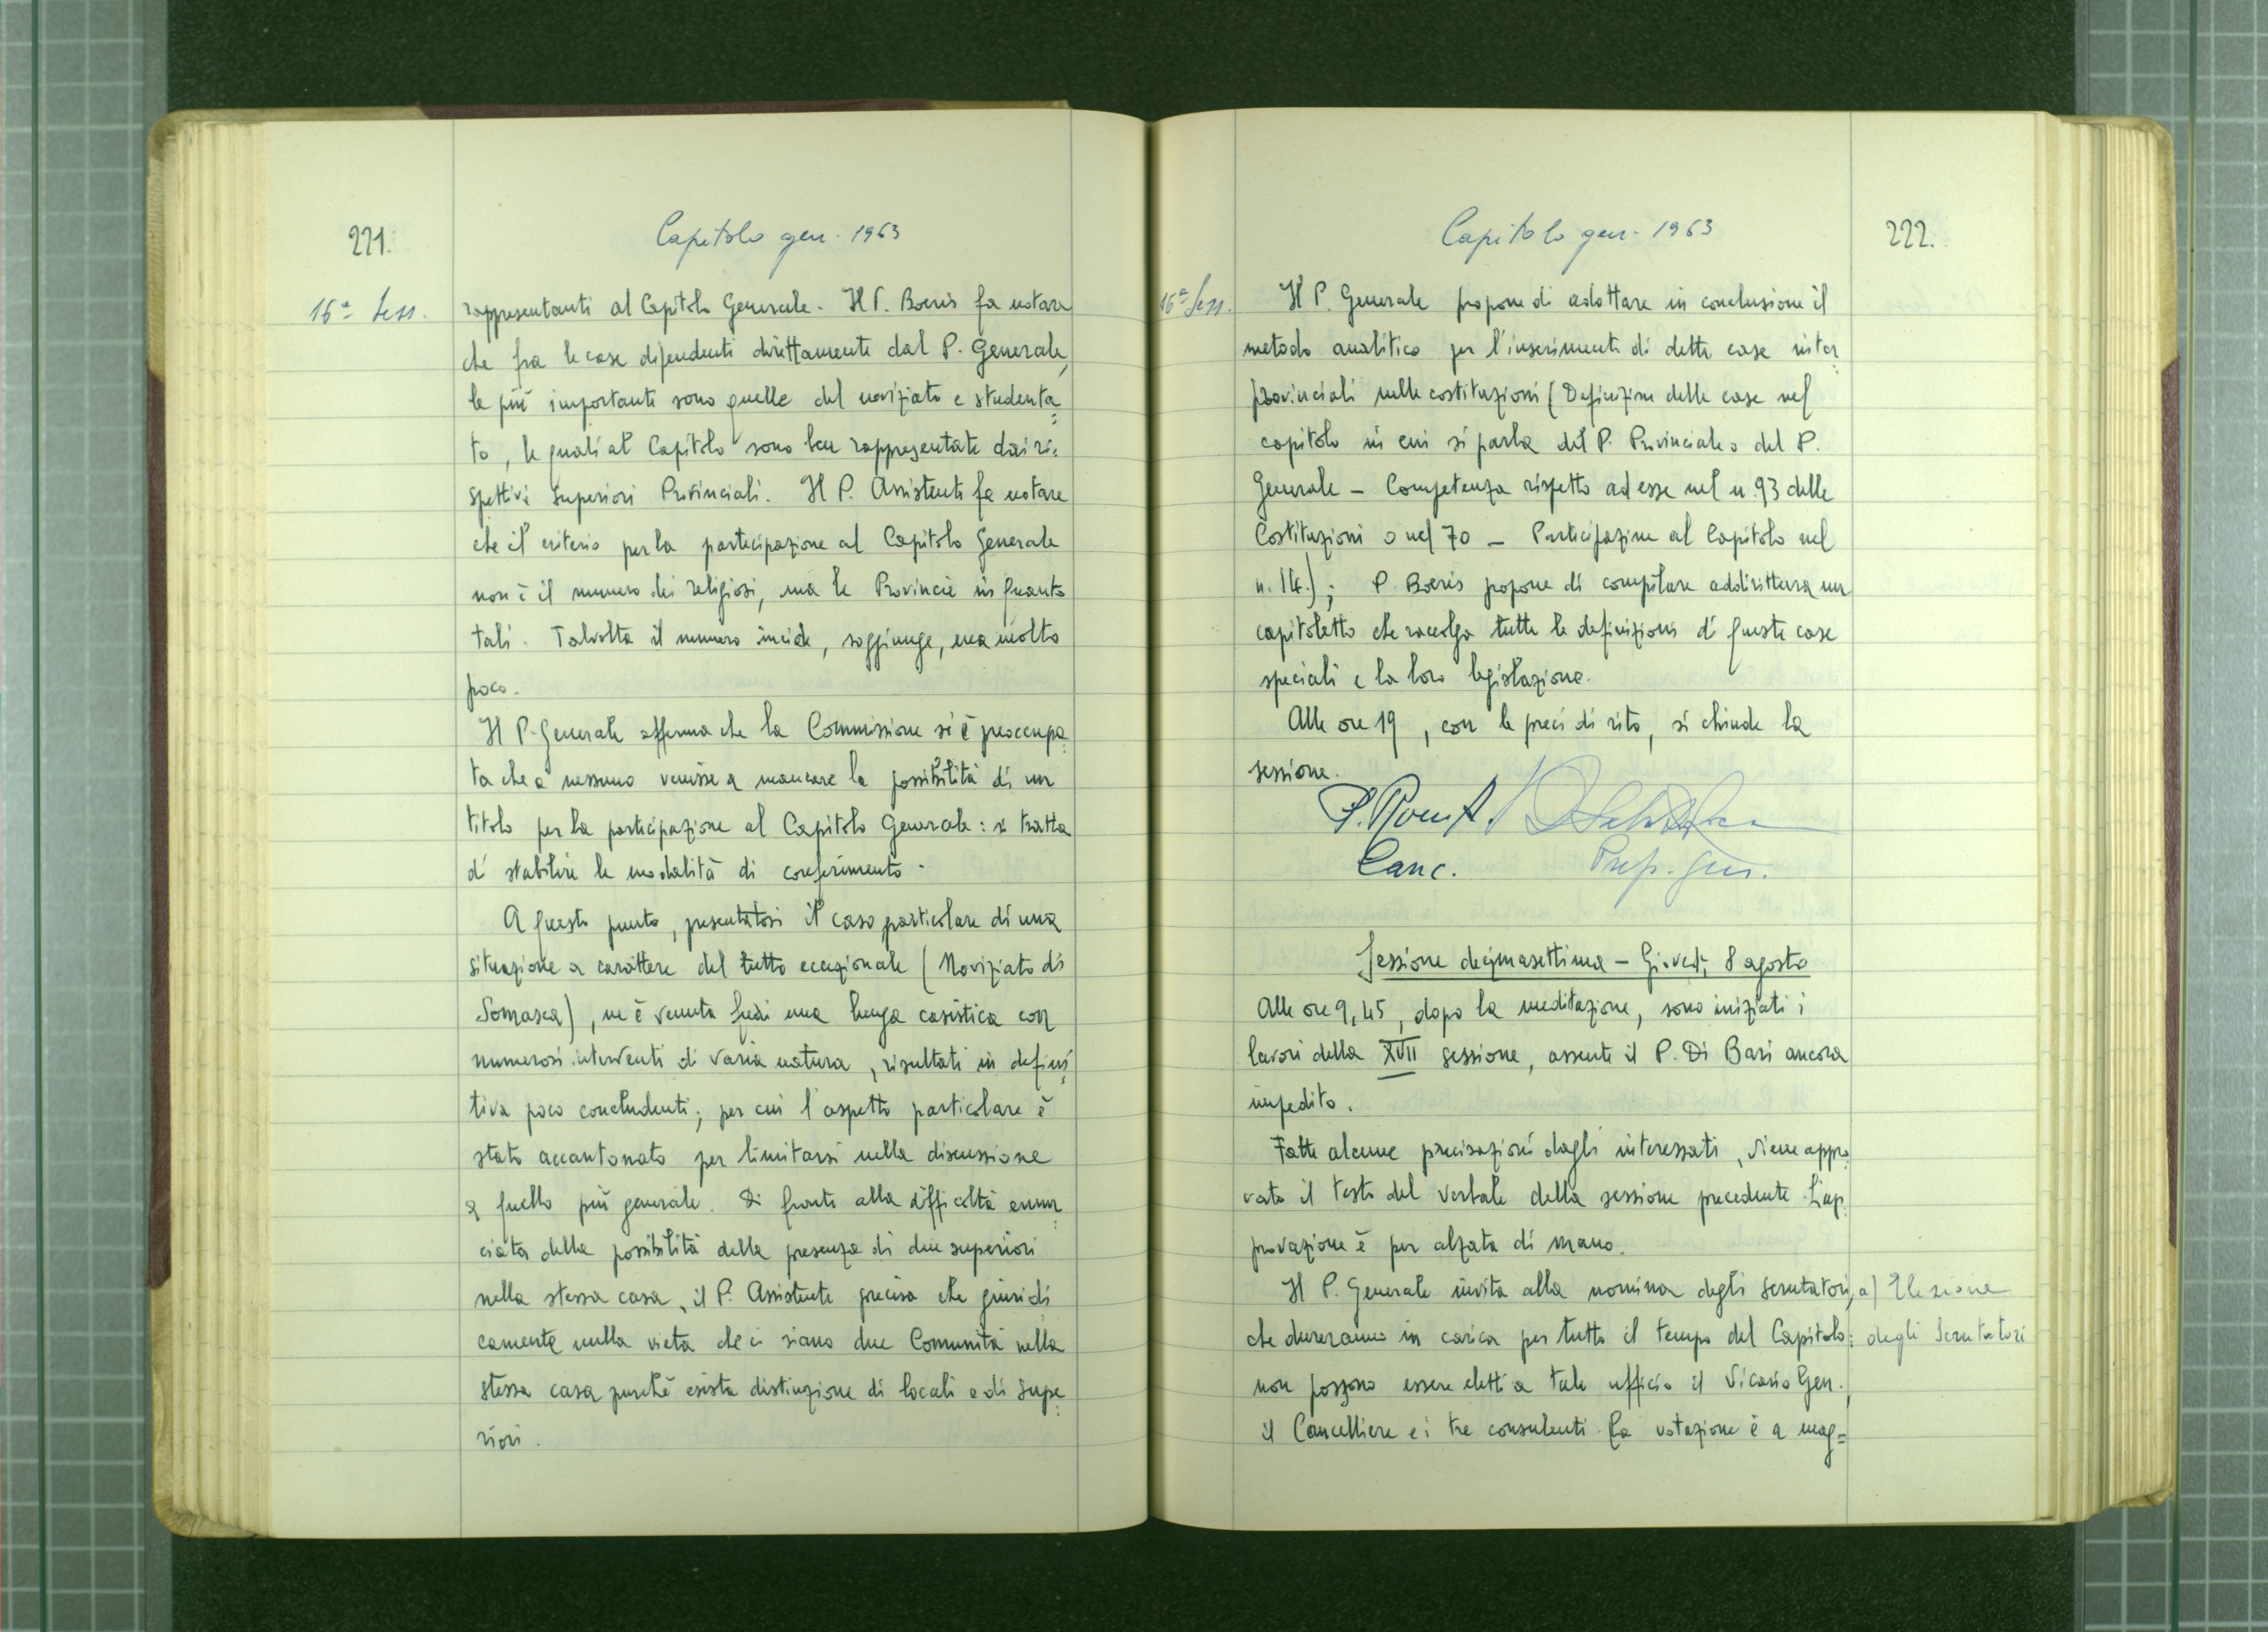 221.
Capitolo gen. 1963
16ª Sess.
rappresentanti al Capitolo Generale. Il P. Boeris fa notare
che fra le case dipendenti direttamente dal P. Generale,
le più importanti sono quelle del noviziato e studenta=
to, le quali al Capitolo sono ben rappresentate dai ri=
spettivi Superiori Provinciali. Il P. Assistente fa notare
che il criterio per la partecipazione al Capitolo Generale
non è il numero dei religiosi, ma le Provincie in quanto
tali. Talvolta il numero incide, soggiunge, ma molto
poco.
Il P. Generale afferma che la Commissione si è preoccupa=
ta che a nessuno venisse a mancare la possibilità di un
titolo per la partecipazione al Capitolo Generale: si tratta
di stabilire le modalità di conferimento.
A questo punto, presentatosi il caso particolare di una
situazione a carattere del tutto eccezionale (Noviziato di
Somasca), ne è venuta fuori una lunga casistica con
numerosi interventi di varia natura, risultati in defini=
tiva poco concludenti; per cui l'aspetto particolare è
stato accantonato per limitarsi nella discussione
a quello più generale. Di fronte alla difficoltà enun=
ciata della possibilità della presenza di due superiori
nella stessa casa, il P. Assistente precisa che giuridi=
camente nulla vieta che ci siano due Comunità nella
stessa casa purchè esista distinzione di locali e di Supe=
riori.
Capitolo gen. 1963
222.
16ª Sess.
Il P. Generale propone di adottare in conclusione il
metodo analitico per l'inserimento di dette case inter=
provinciali nelle costituzioni (Definizione delle case nel
capitolo in cui si parla del P. Provinciale o del P.
Generale - Competenza rispetto ad esse nel n. 93 delle
Costituzioni o nel 70 - Participazione al Capitolo nel
n. 14.); P. Boeris propone di compilare addirittura un
capitoletto che raccolga tutte le definizioni di queste case
speciali e la loro legislazione.
Alle ore 19, con le preci di rito, si chiude la
sessione.
Canc.
Prep. gen.
Sessione decimasettima - Giovedì, 8 agosto
Alle ore 9,45, dopo la meditazione, sono iniziati i
lavori della XVII sessione, assente il P. Di Bari ancora
impedito.
Fatte alcune precisazioni dagli interessati, viene appro=
vato il testo del verbale della sessione precedente. L'ap=
provazione è per alzata di mano.
Il P. Generale invita alla nomina degli scrutatori,
a) Elezione
che dureranno in carica per tutto il tempo del Capitolo:
degli Scrutatori
non possono essere eletti a tale ufficio il Vicario Gen.,
il Cancelliere e i tre consulenti. La votazione è a mag=